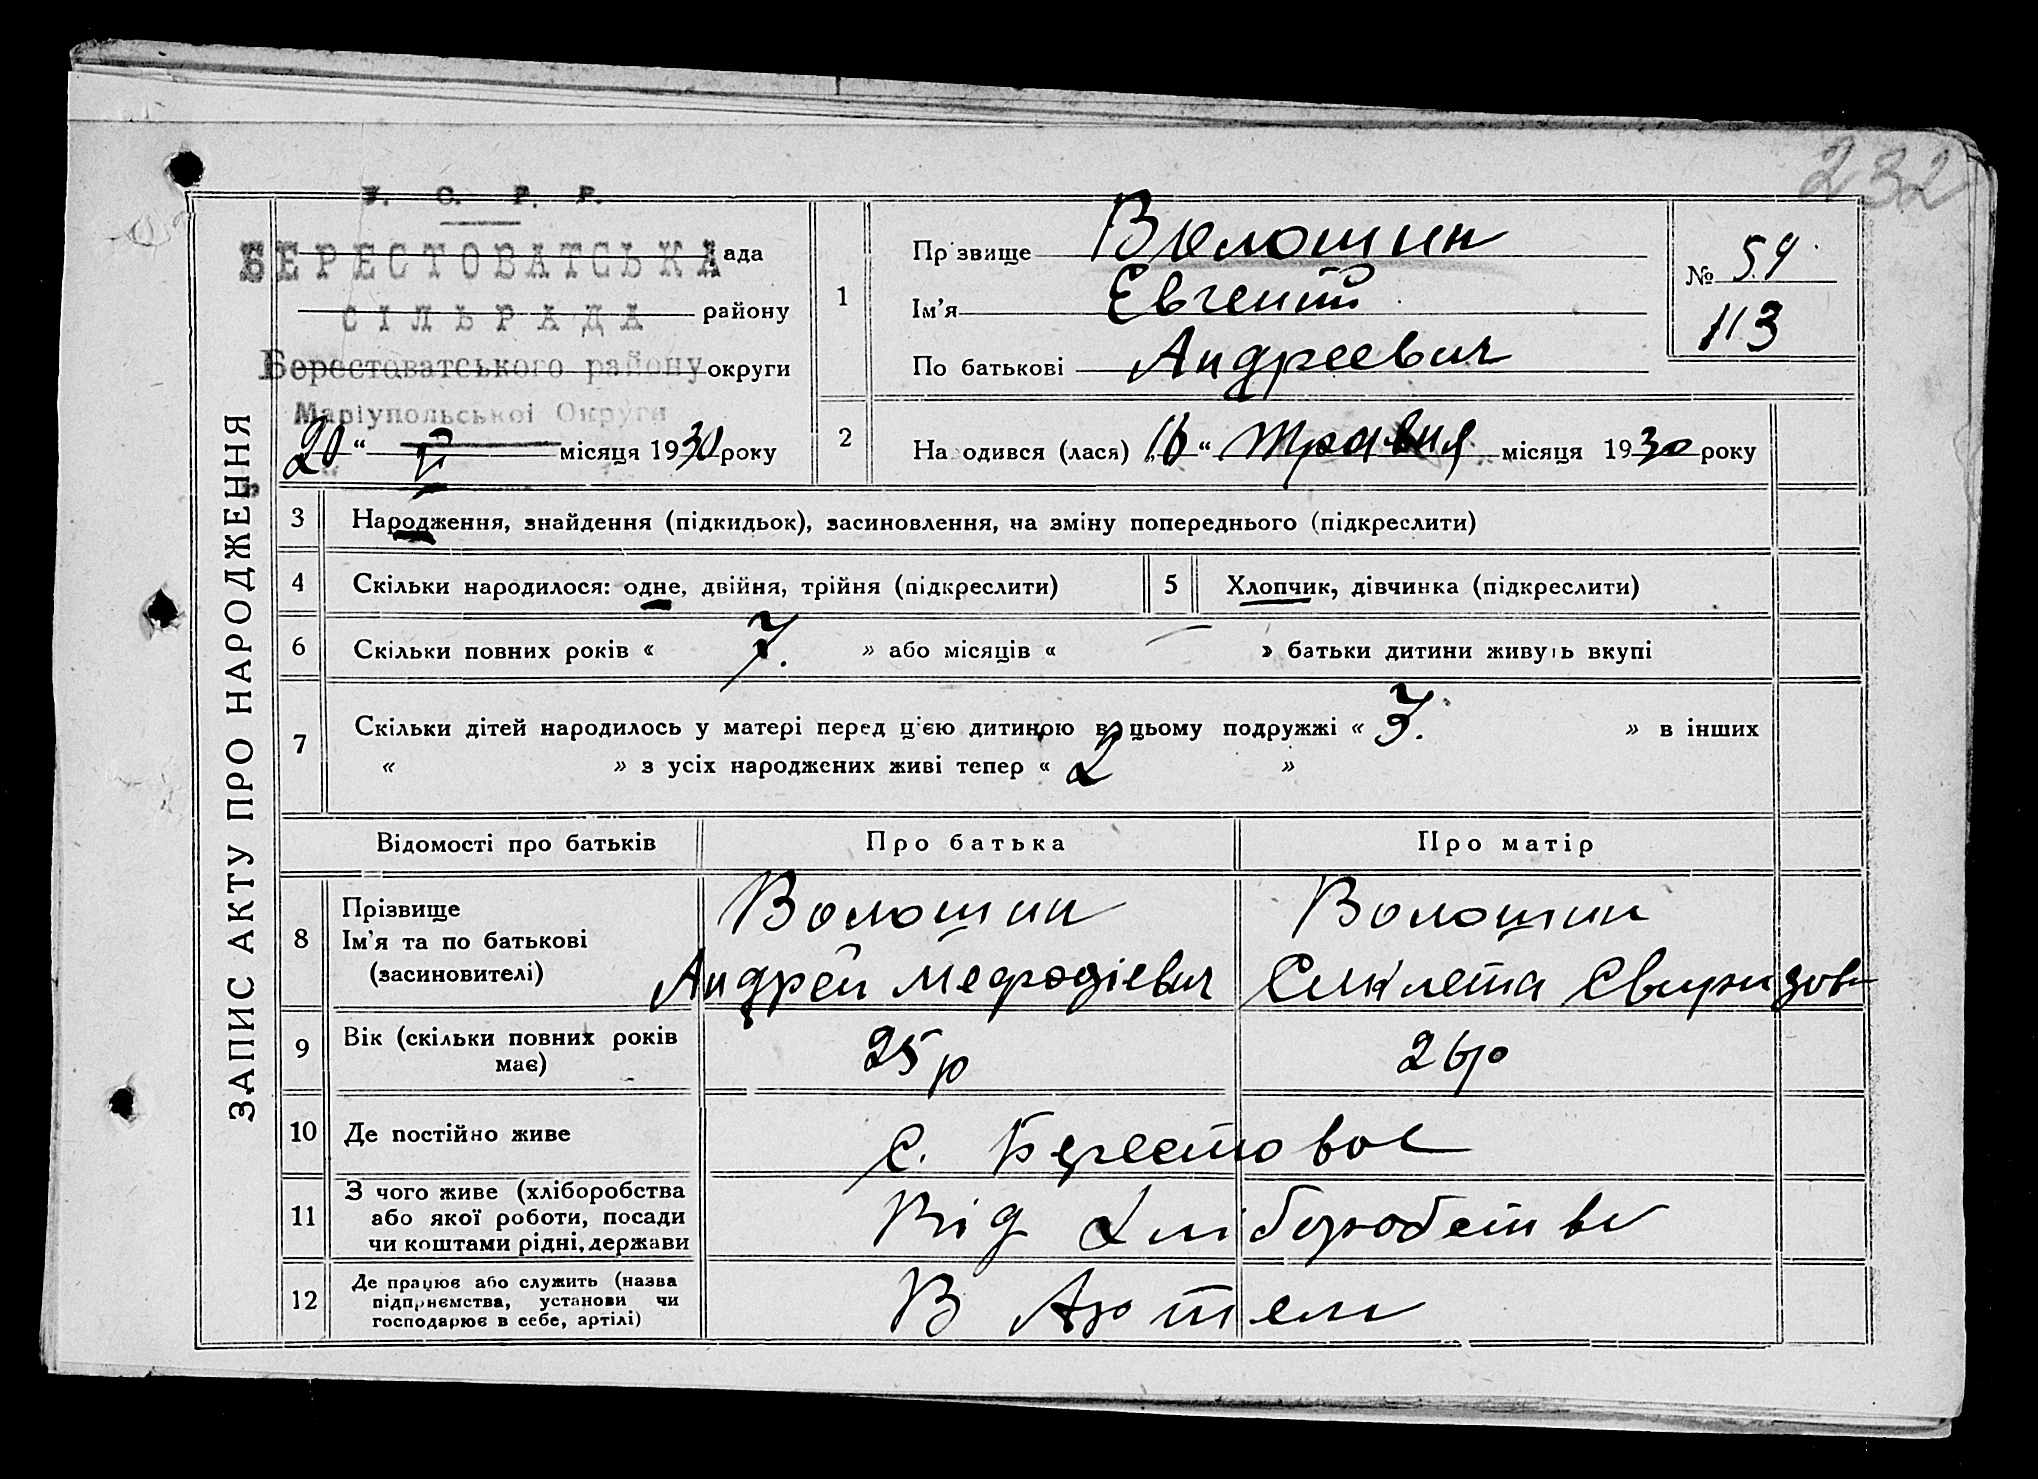 232
ЗАПИС АКТУ ПРО НАРОДЖЕННЯ
У. С. Р. Р.
БЕРЕСТОВАТСЬКА ада
СІЛЬРАДА району
Берестоватського району округи
Маріупольської Округи
20 “ V місяця 1930 року
1
Пр звище Волошин
Ім’я Євгений
По батькові Андреевич
№ 59
113
2
На одився (лася) „16 “ травня місяця 1930 року
3 Народження, знайдення (підкидьок), засиновлення, на зміну попереднього (підкреслити)
4 Скільки народилося: одне, двійня, трійня (підкреслити)
5 Хлопчик, дівчинка (підкреслити)
6 Скільки повних років « 7. » або місяців « — » батьки дитини живуть вкупі
7 Скільки дітей народилось у матері перед цією дитиною в цьому подружжі « 3. » в інших
« » з усіх народжених живі тепер « 2 »
Відомості про батьків Про батька Про матір
8 Прізвище Волошин Волошин
Ім’я та по батькові
(засиновителі) Андрей Мефодієвич
9 Вік (скільки повних років має) 25 р 26 р
10 Де постійно живе с. Берестовое
11 З чого живе (хліборобства
або якої роботи, посади
чи коштами рідні, держави Від Хліборобства
12 Де працює або служить (назва
підприємства, установи чи
господарює в себе, артілі) В Артели